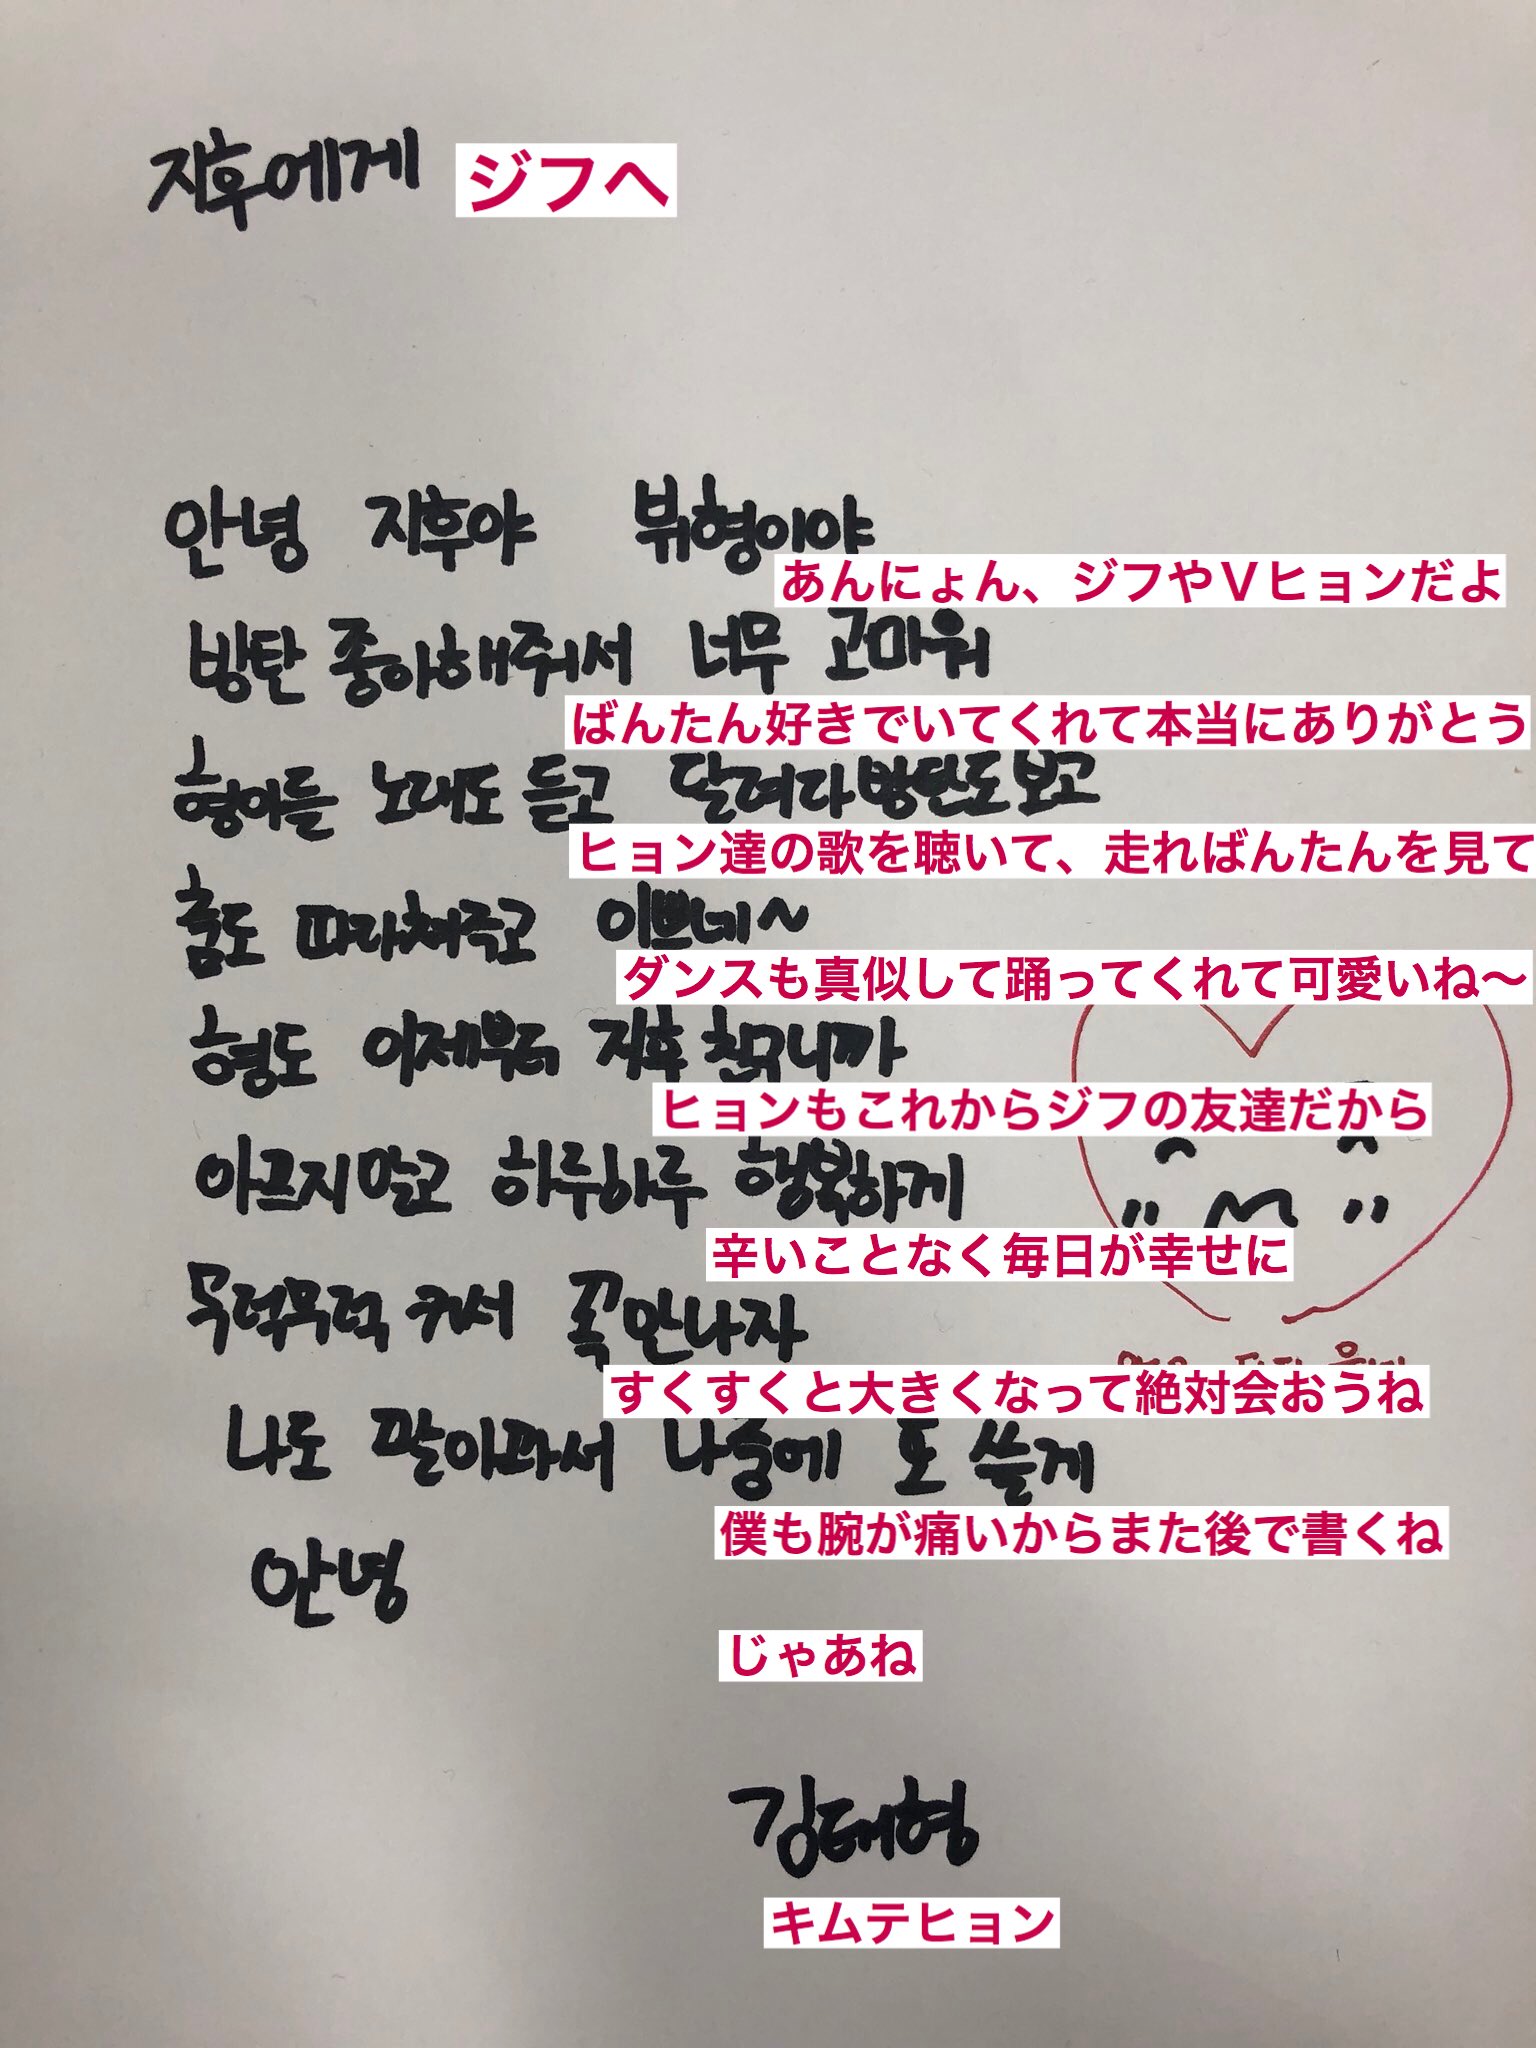 지후에게 ジフへ
안녕 지후야 뷔형이야
あんにょん、ジフやVヒョンだよ
방탄 좋아해줘서 너무 고마워
ばんたん好きでいてくれて本当にありがとう
형아들 노래도 듣고 달려라 방탄도 보고
ヒョン達の歌を聴いて、走ればんたんを見て
춤도 따라춰주고 이쁘네~
ダンスも真似して踊ってくれて可愛いね〜
형도 이제부터 지후 친구니까
ヒョンもこれからジフの友達だから
아프지말고 하루하루 행복하게
辛いことなく毎日が幸せに
무럭무럭 커서 꼭 만나자
すくすくと大きくなって絶対会おうね
나도 팔아파서 나중에 또 쓸게
僕も腕が痛いからまた後で書くね
안녕
じゃあね
김태형
キムテヒョン